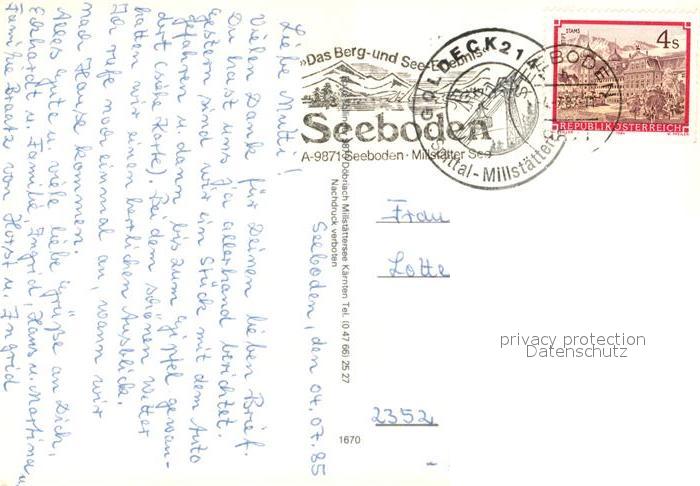 Seeboden, den 04.07.85
Liebe Mutti!
Vielen Dank für Deinen lieben Brief.
Du hast uns ja allerhand berichtet.
Gestern sind wir ein Stück mit dem Auto
gefahren u. dann bis zum Gipfel gewan-
dert (siehe Karte). Bei dem schönen Wetter
hatten wir einen herrlichen Ausblick.
Ich rufe noch einmal an, wann wir
nach Hause kommen.
Alles Gute u. viele liebe Grüße an Dich,
Eckhardt u. Familie Ingrid, Hans u. Martina u.
Familie von Horst u. Ingrid
»Das Berg-und See-Erlebnis«
Seeboden
A-9871 Seeboden · Millstätter See
GOLDECK 214
Spittal-Millstätter
BODEN
STIFT STAMS
4 S
REPUBLIK ÖSTERREICH
Döbriach Millstättersee Kärnten Tel. (0 47 66) 25 27
Nachdruck verboten
1670
Frau
Lotte
2352
privacy protection
Datenschutz